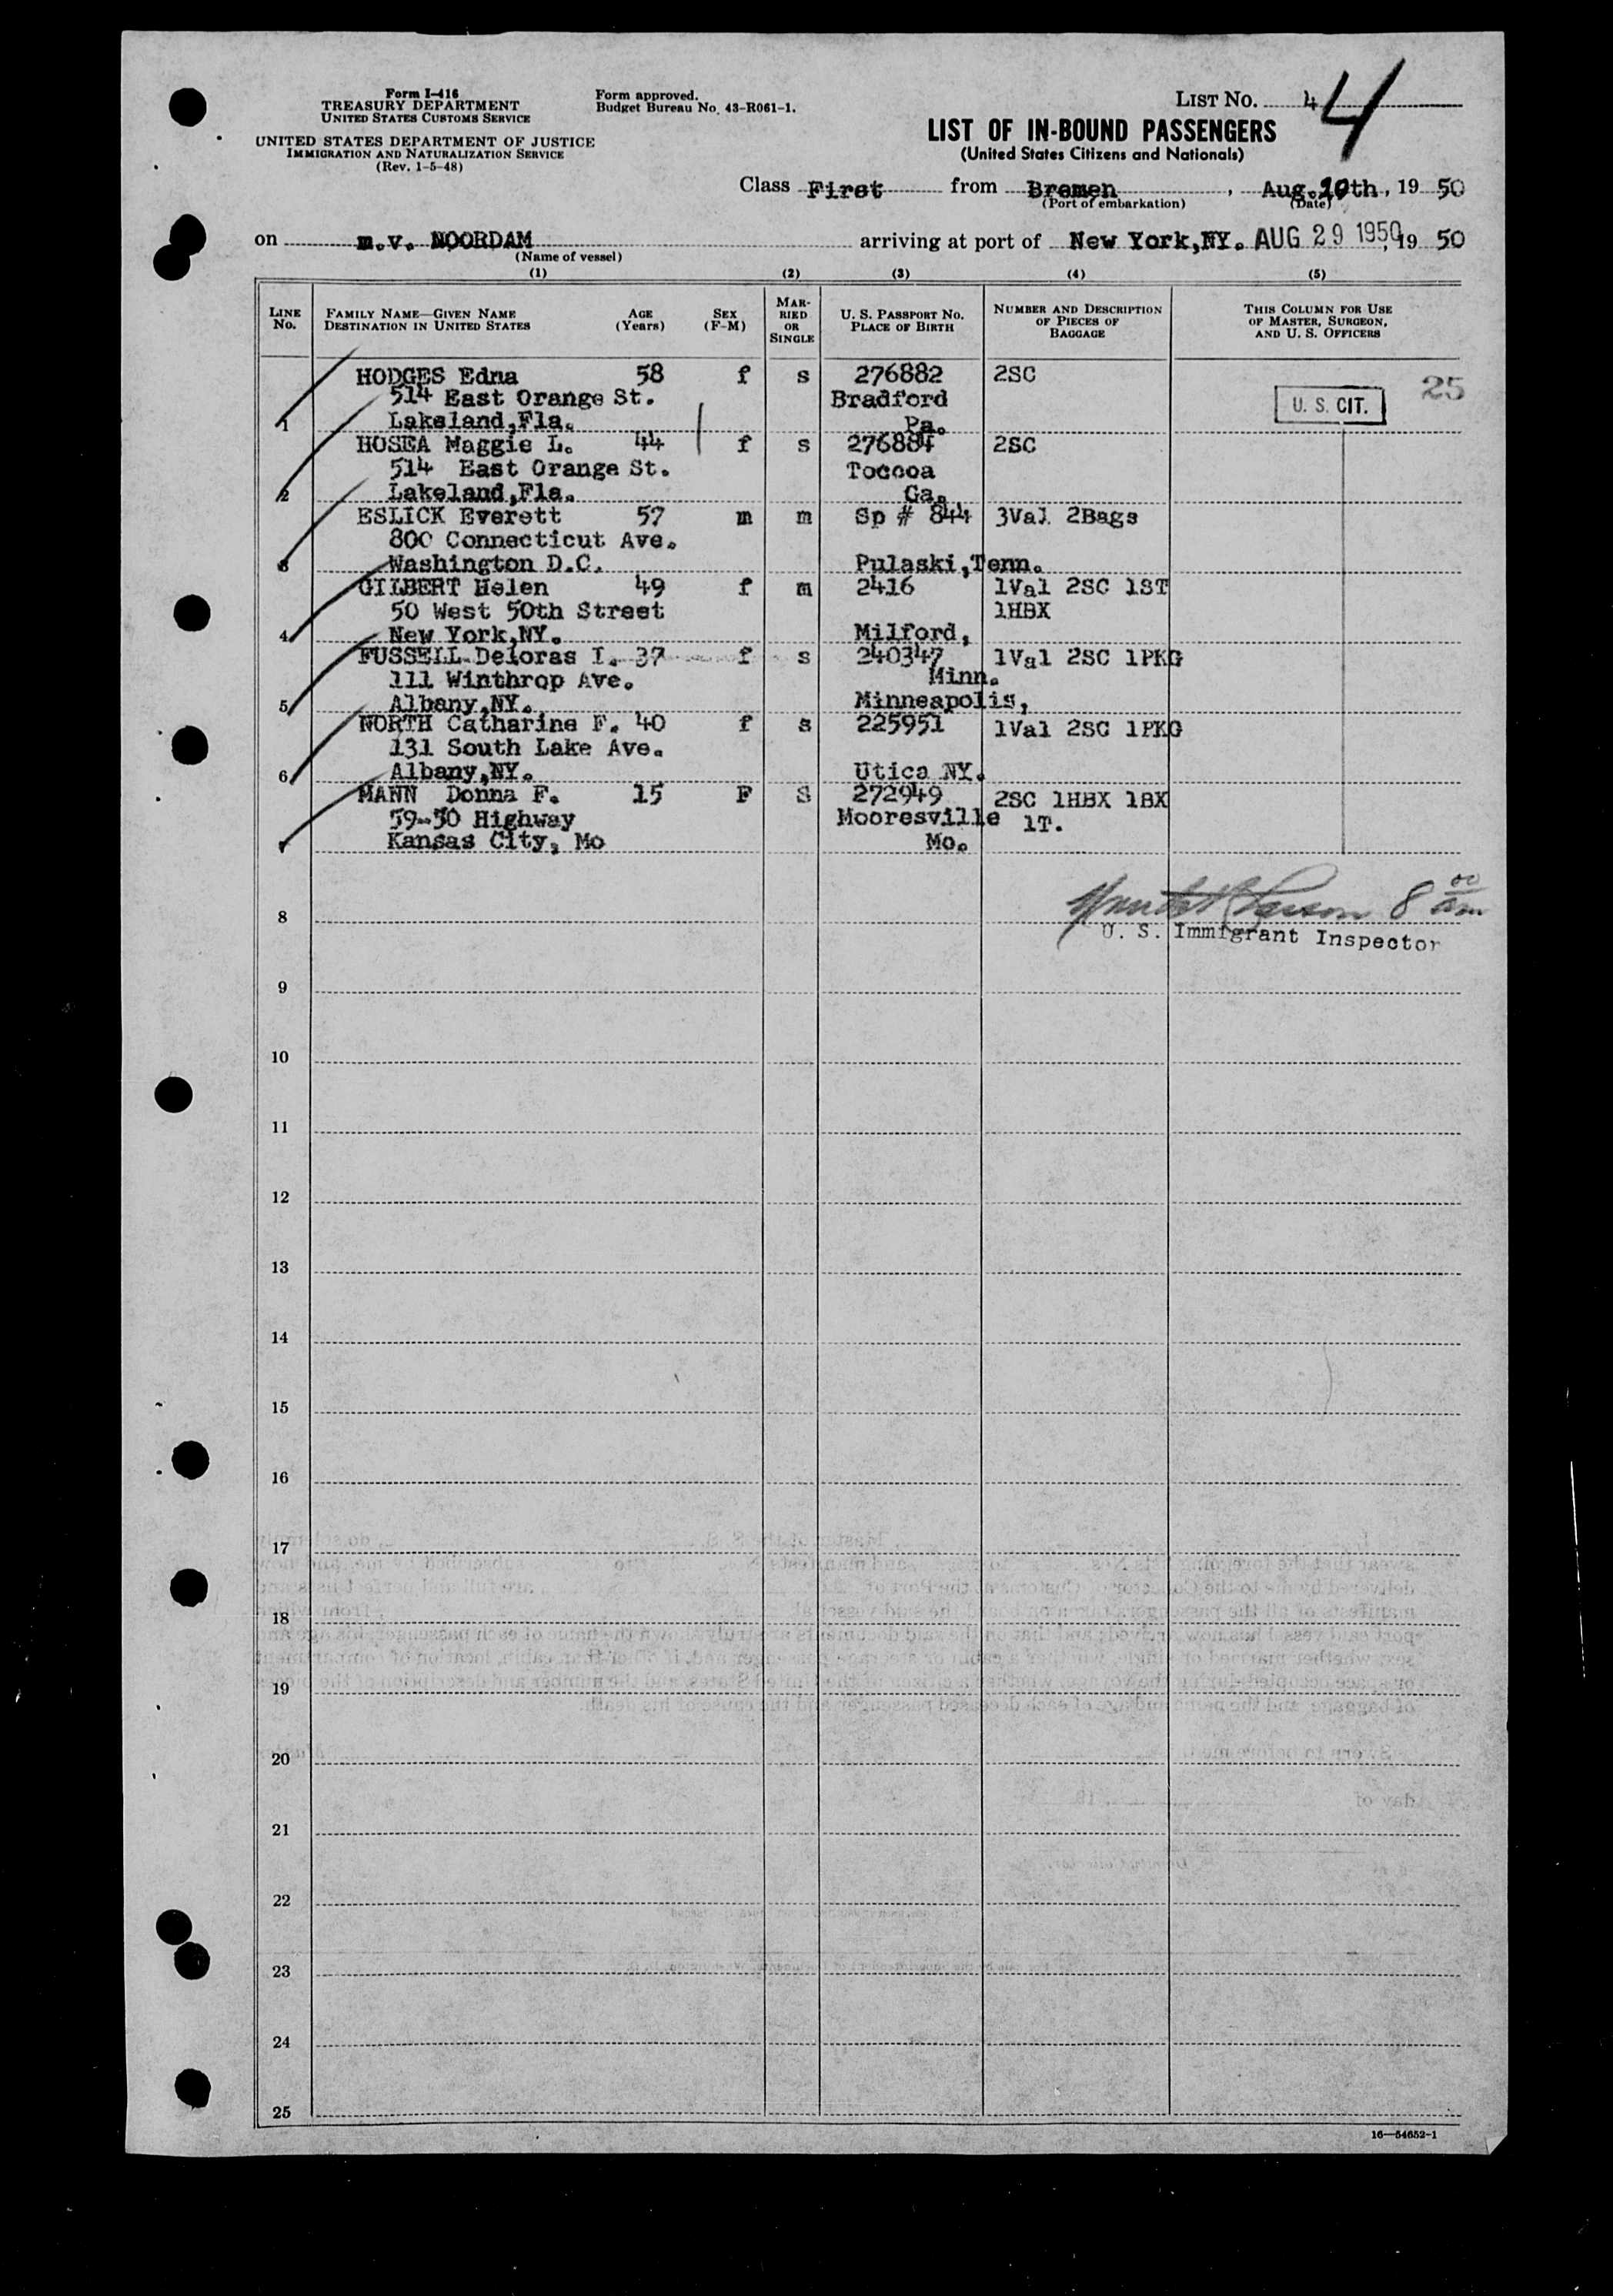 Form I-416
TREASURY DEPARTMENT
UNITED STATES CUSTOMS SERVICE
UNITED STATES DEPARTMENT OF JUSTICE
IMMIGRATION AND NATURALIZATION SERVICE
(Rev. 1-5-48)
Form approved.
Budget Bureau No. 43-R061-1.
LIST No. 4 4
LIST OF IN-BOUND PASSENGERS
(United States Citizens and Nationals)
Class First from Bremen, Aug. th, 19 50
(Port of embarkation) (Date)
on m.v. NOORDAM arriving at port of New York,NY. AUG 29 1950, 19 50
(Name of vessel)
(1) (2) (3) (4) (5)
LINE No. FAMILY NAME—GIVEN NAME DESTINATION IN UNITED STATES AGE (Years) SEX (F-M) MARRIED OR SINGLE U. S. PASSPORT NO. PLACE OF BIRTH NUMBER AND DESCRIPTION OF PIECES OF BAGGAGE THIS COLUMN FOR USE OF MASTER, SURGEON, AND U. S. OFFICERS
HODGES Edna 58 f s 276882 2SC 25
514 East Orange St. Bradford U. S. CIT.
1 Lakeland,Fla. Pa.
HOSEA Maggie L. 44 f s 276884 2SC
514 East Orange St. Toccoa
2 Lakeland,Fla. Ga.
ESLICK Everett 57 m m Sp # 844 3Val 2Bags
800 Connecticut Ave.
3 Washington D.C. Pulaski,Tenn.
GILBERT Helen 49 f m 2416 1Val 2SC 1ST
50 West 50th Street 1HBX
4 New York,NY. Milford,
FUSSELL Deloras I. 37 f s 240347 1Val 2SC 1PKG
111 Winthrop Ave. Minn.
5 Albany,NY. Minneapolis,
NORTH Catharine F. 40 f s 225951 1Val 2SC 1PKG
131 South Lake Ave.
6 Albany,NY. Utica NY.
MANN Donna F. 15 F S 272949 2SC 1HBX 1BX
59-50 Highway Mooresville 1T.
7 Kansas City, Mo Mo.
8 8 00 am
U. S. Immigrant Inspector
9
10
11
12
13
14
15
16
17
18
19
20
21
22
23
24
25
16—54652-1